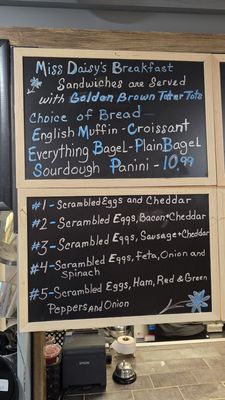 Miss Daisy's Breakfast
Sandwiches are Served
with Golden Brown Tater Tots
Choice of Bread-
English Muffin - Croissant
Everything Bagel-Plain Bagel
Sourdough Panini - 10.99
#1 - Scrambled Eggs and Cheddar
#2 - Scrambled Eggs, Bacon+Cheddar
#3 - Scrambled Eggs, Sausage+Cheddar
#4 - Scrambled Eggs, feta, Onion and
Spinach
#5 - Scrambled Eggs, Ham, Red & Green
Peppers And Onion